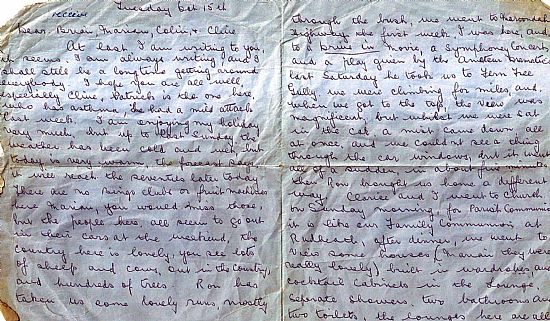 Tuesday Oct 15th
Dear Brian, Marian, Colin, & Clive
At last I am writing to you,
it seems I am always writing and I
shall still be a long time getting around
everybody. I hope you are all well
especially Clive, Patrick is the one here,
who has asthma, he had a mild attack
last week. I am enjoying my holiday
very much, but up to last Sunday the
weather has been cold and wet, but
today is very warm, the forecast says
it will reach the seventies later today
There are no Bingo clubs or fruit machines
here Marian, you would miss those,
but the people here, all seem to go out
in their cars at the weekend, the
country here is lonely, you see lots
of sheep and cows, out in the country,
and hundreds of trees Ron has
taken us some lovely runs, mostly
through the bush, we went to Maroondah
Highway the first week I was here, and
to a drive in Movie, a Symphony Concert
and a play given by the Amateur Dramatic
last Saturday he took us to Fern Tree
Gully we were climbing for miles, and
when we got to the top, the view was
magnificent, but whilst we were sat
in the car a mist came down all
at once, and we couldn't see a thing
through the car windows, but it went
all of a sudden in about five minutes
then Ron brought us home a different
way. Clarice and I, went to Church
on Sunday morning, for Parish Communion
it is like our Family Communion at
Rudheath, after dinner, we went to
view some houses (Marian they were
really lovely) built in wardrobes and
cocktail cabinets in the lounge,
seperate showers, two bathrooms and
two toilets, the lounges here are all